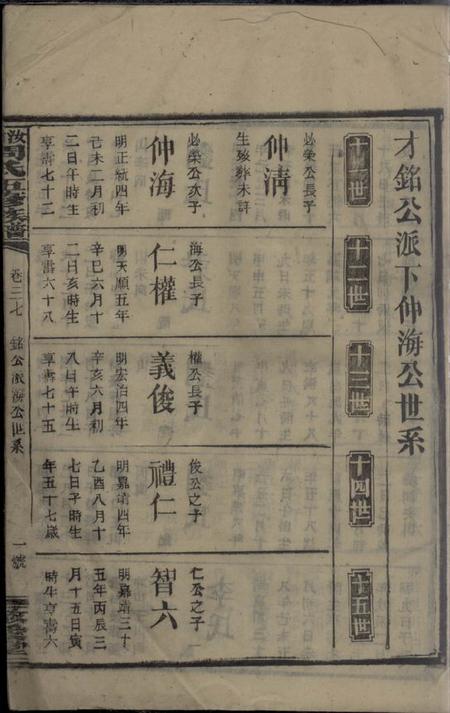 才銘公派下仲海公世系
十一世
十二世
十三世
十四世
十五世
必榮公長子
仲清
生歿葬未詳
必榮公次子
仲海
明正統四年
己未二月初
二日午時生
享壽七十二
海公長子
仁權
明天順五年
辛巳六月十
二日亥時生
享壽六十八
權公長子
義俊
明宏治四年
辛亥六月初
八日午時生
享壽七十五
俊公之子
禮仁
明嘉靖四年
乙酉八月十
七日子時生
年五十七歲
仁公之子
智六
明嘉靖三十
五年丙辰三
月十五日寅
時生享壽六
汝周氏五修族譜
卷三七
銘公派海公世系
一號